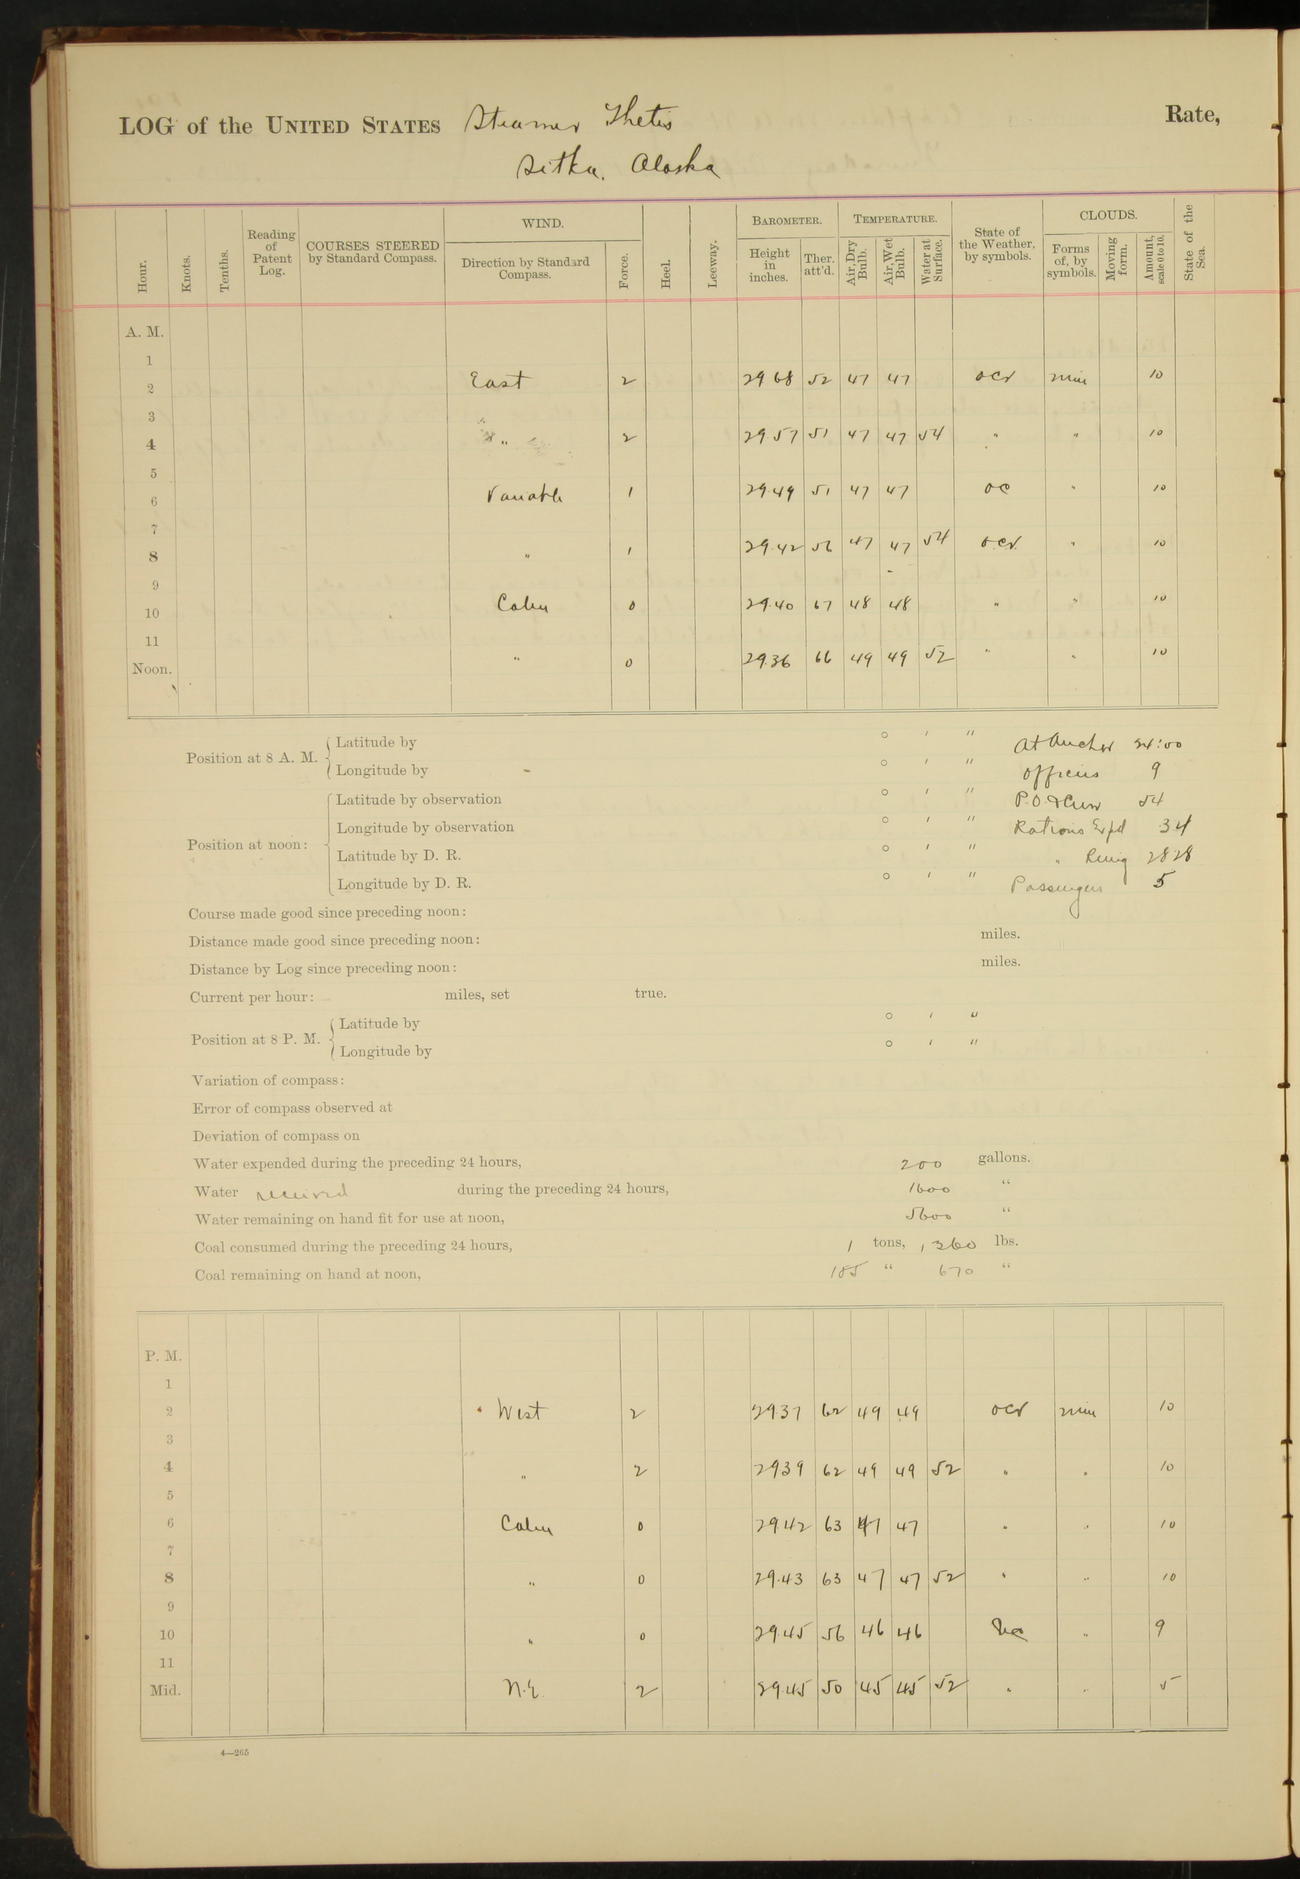 LOG of the UNITED STATES Steamer Thetis Rate,
Sitka, Alaska
Hour. Knots. Tenths. Reading of Patent Log. COURSES STEERED by Standard Compass. WIND. Direction by Standard Compass. Force. Heel. Leeway. BAROMETER. Height in inches. Ther. att'd. TEMPERATURE. Air, Dry Bulb. Air, Wet Bulb. Water at Surface. State of the Weather, by symbols. CLOUDS. Forms of, by symbols. Moving form. Amount, scale 0 to 10. State of the Sea.
A. M.
1
2 East 2 29 68 52 47 47 ocr nim 10
3
4 " 2 29 57 51 47 47 54 " " 10
5
6 Variable 1 29.49 51 47 47 oc " 10
7
8 " 1 29.42 56 47 47 54 ocr " 10
9
10 Calm 0 29.40 67 48 48 " " 10
11
Noon. " 0 29.36 66 49 49 52 " " 10
Position at 8 A. M. Latitude by ° ′ ″ At Anchor 24:00
Longitude by ° ′ ″ Officers 9
Position at noon: Latitude by observation ° ′ ″ P.O. & Crew 54
Longitude by observation ° ′ ″ Rations Expd 34
Latitude by D. R. ° ′ ″ " Remg 2828
Longitude by D. R. ° ′ ″ Passengers 5
Course made good since preceding noon:
Distance made good since preceding noon: miles.
Distance by Log since preceding noon: miles.
Current per hour: miles, set true.
Position at 8 P. M. Latitude by ° ′ ″
Longitude by ° ′ ″
Variation of compass:
Error of compass observed at
Deviation of compass on
Water expended during the preceding 24 hours, 200 gallons.
Water received during the preceding 24 hours, 1600 "
Water remaining on hand fit for use at noon, 5600 "
Coal consumed during the preceding 24 hours, 1 tons, 1360 lbs.
Coal remaining on hand at noon, 185 " 670 "
P. M.
1
2 West 2 29 37 62 49 49 ocr nim 10
3
4 " 2 29 39 62 49 49 52 " " 10
5
6 Calm 0 29.42 63 47 47 " " 10
7
8 " 0 29.43 63 47 47 52 " " 10
9
10 " 0 29.45 56 46 46 " 9
11
Mid. N.E. 2 29.45 50 45 45 52 " " 5
4—265